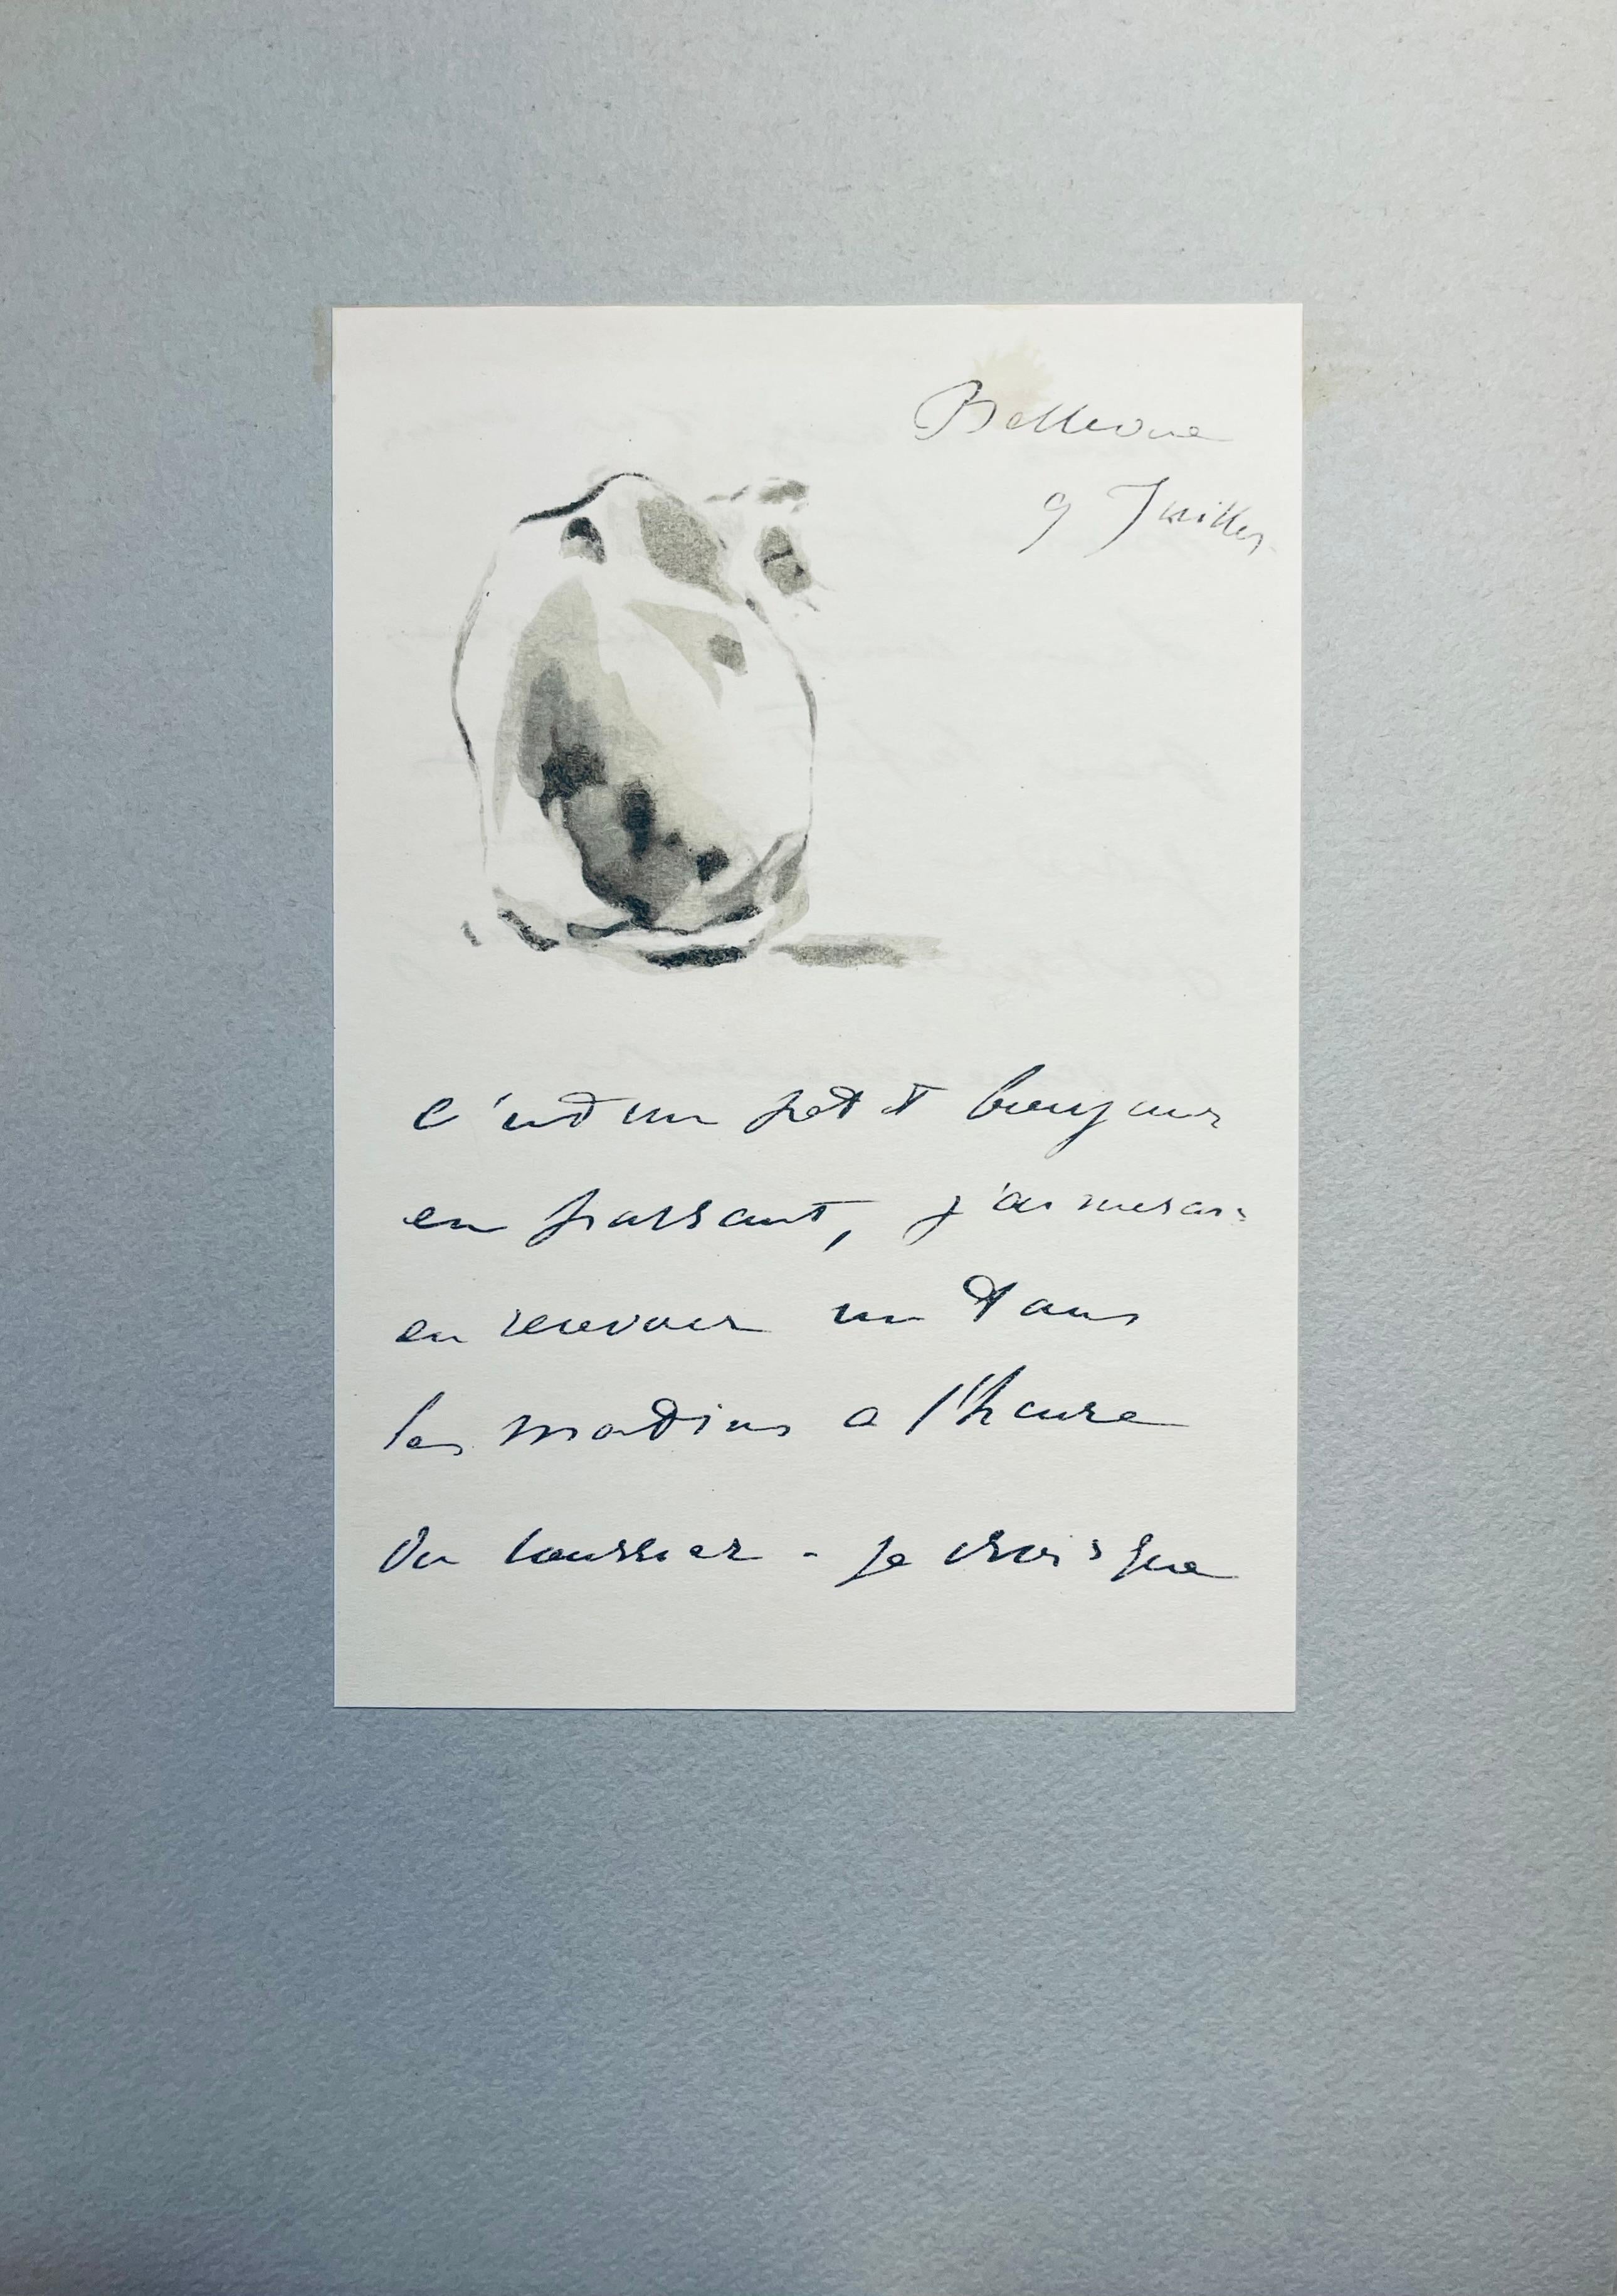 Bellevue
9 Juillet
c'est un petit bonjour
en passant, j'aimerais
en recevoir un tous
les matins a l'heure
du courrier - je crois que